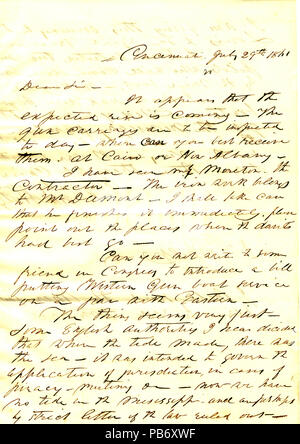 Cincinnati July 29th 1861
Dear Sir -
It appears that the
expected rise is coming - The
gun carriages are to be inspected
to day - where can you best receive
them, at Cairo or New Albany -
I have seen Mr Morton, the
Contractor - The iron work belongs
to Mr Dumont - I shall take care
that he finishes it immediately, please
point out the places where the davits
had best go -
Can you not write to some
friend in Congress to introduce a bill
putting Western Gun boat service
on a par with Eastern -
The thing seems very just -
Some English Authority I hear decides
that where the tide made, there was
the sea - it was intended to govern the
application of jurisdiction, in cases of
piracy - mutiny &c - now we have
no tide in the Mississippi and are perhaps
by strict letter of the law ruled out -
alamy
Image ID: PB6XWF
www.alamy.com